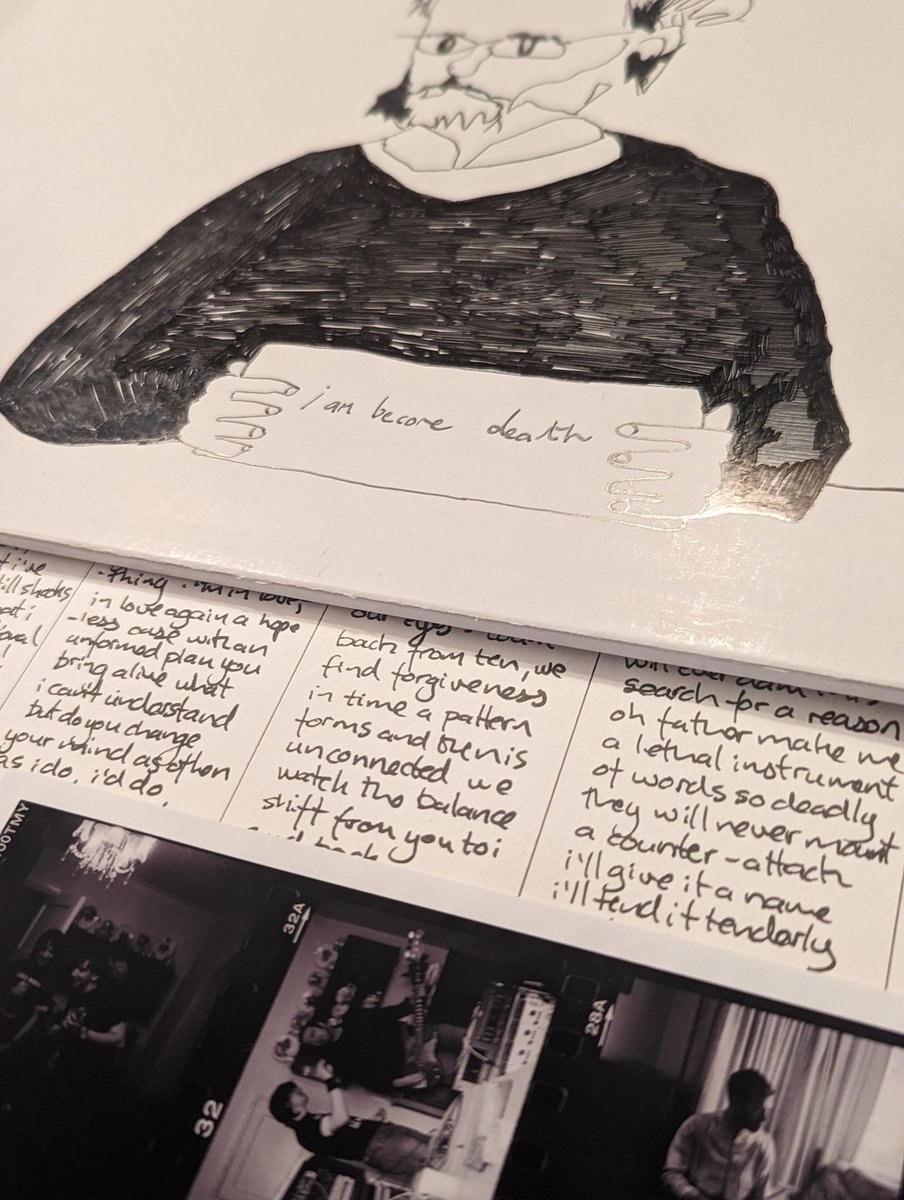 i am become death
i've
still shocks
-thing. i'm in love,
in love again a hope
-less case with an
unformed plan you
bring alive what
i can't understand
but do you change
your mind as often
as i do. i'd do.
our eyes - count
back from ten, we
find forgiveness
in time a pattern
forms and then is
unconnected we
watch the balance
shift from you to i
and back
will ever
search for a reason
oh father make me
a lethal instrument
of words so deadly
they will never mount
a counter-attack
i'll give it a name
i'll tend it tenderly
32A
32
28A